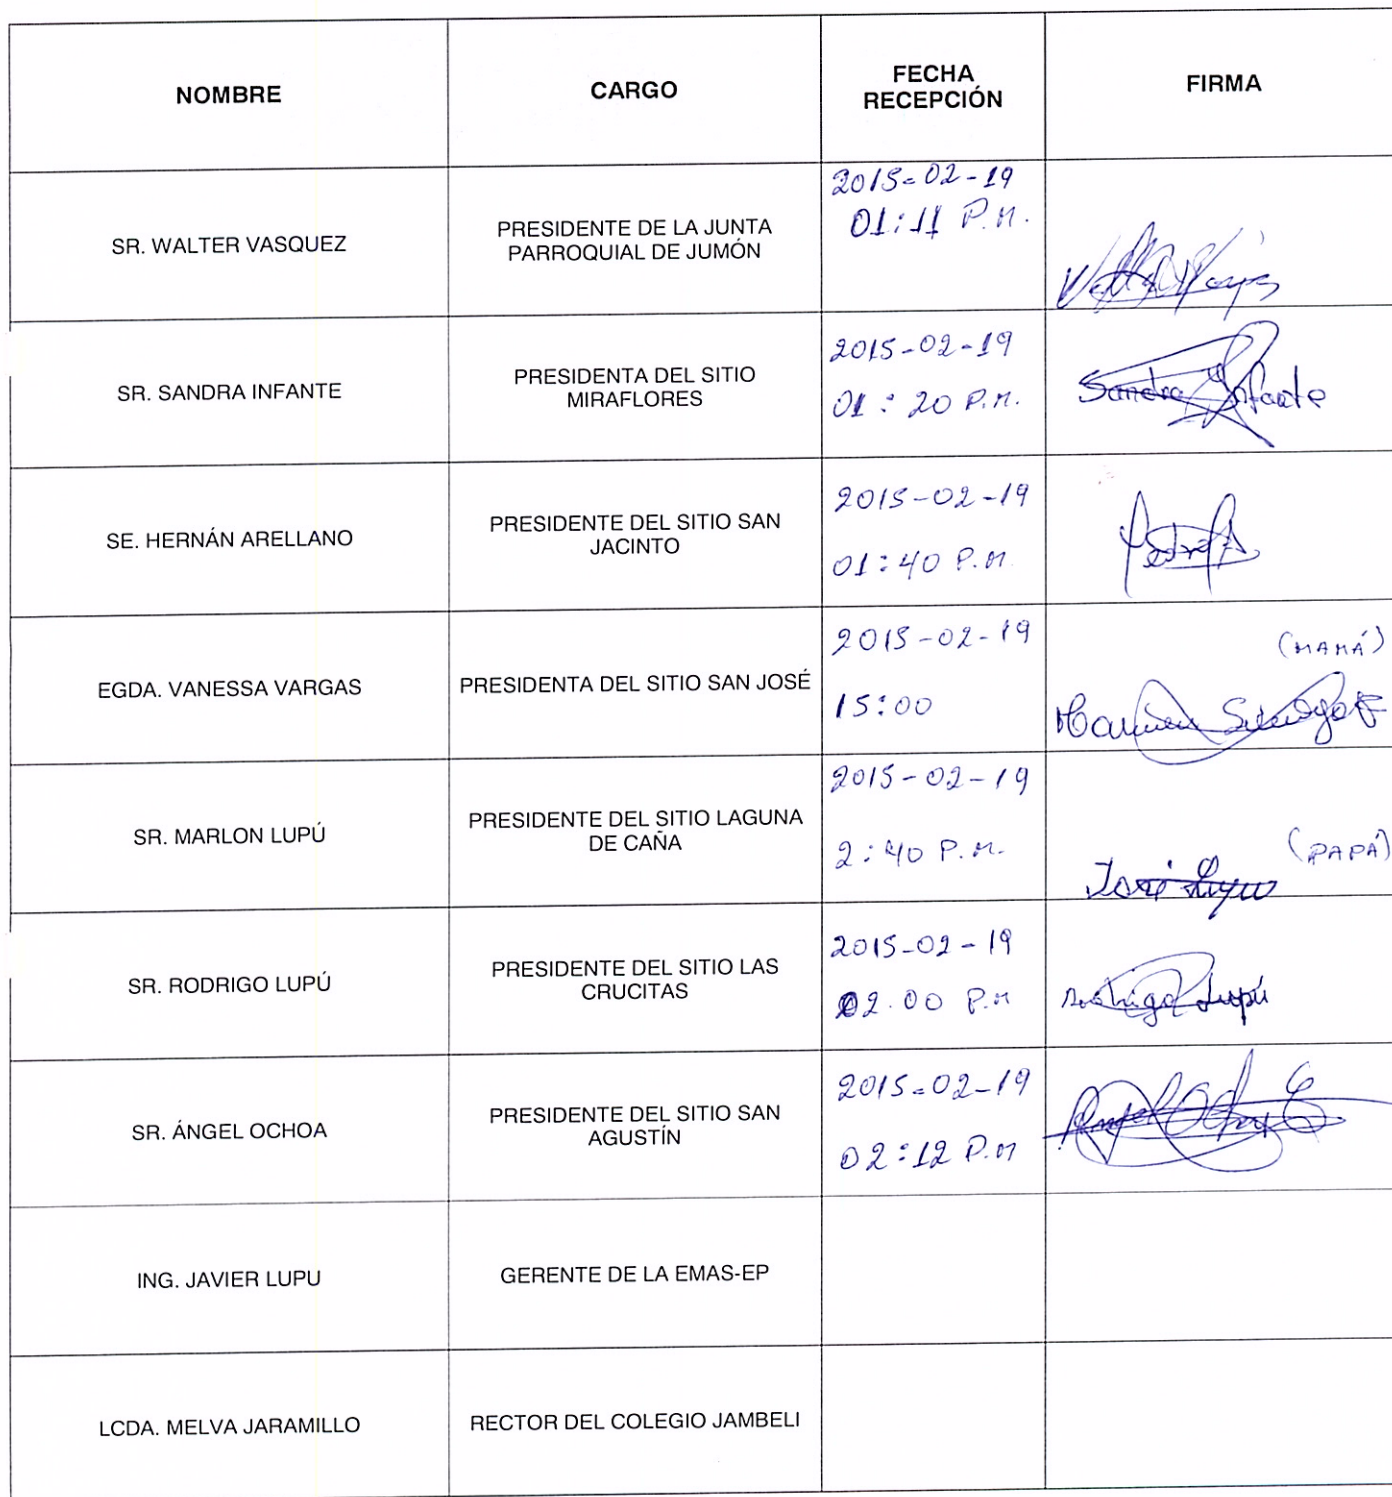 NOMBRE
CARGO
FECHA
RECEPCIÓN
FIRMA
SR. WALTER VASQUEZ
PRESIDENTE DE LA JUNTA
PARROQUIAL DE JUMÓN
2015-02-19
01:11 P.M.
SR. SANDRA INFANTE
PRESIDENTA DEL SITIO
MIRAFLORES
2015-02-19
01:20 P.M.
Sandra Infante
SE. HERNÁN ARELLANO
PRESIDENTE DEL SITIO SAN
JACINTO
2015-02-19
01:40 P.M.
EGDA. VANESSA VARGAS
PRESIDENTA DEL SITIO SAN JOSÉ
2015-02-19
15:00
(MAMÁ)
SR. MARLON LUPÚ
PRESIDENTE DEL SITIO LAGUNA
DE CAÑA
2015-02-19
2:40 P.M.
(PAPÁ)
José Lupu
SR. RODRIGO LUPÚ
PRESIDENTE DEL SITIO LAS
CRUCITAS
2015-02-19
02.00 P.M
Rodrigo Lupú
SR. ÁNGEL OCHOA
PRESIDENTE DEL SITIO SAN
AGUSTÍN
2015-02-19
02:12 P.M
Angel Ochoa
ING. JAVIER LUPU
GERENTE DE LA EMAS-EP
LCDA. MELVA JARAMILLO
RECTOR DEL COLEGIO JAMBELI